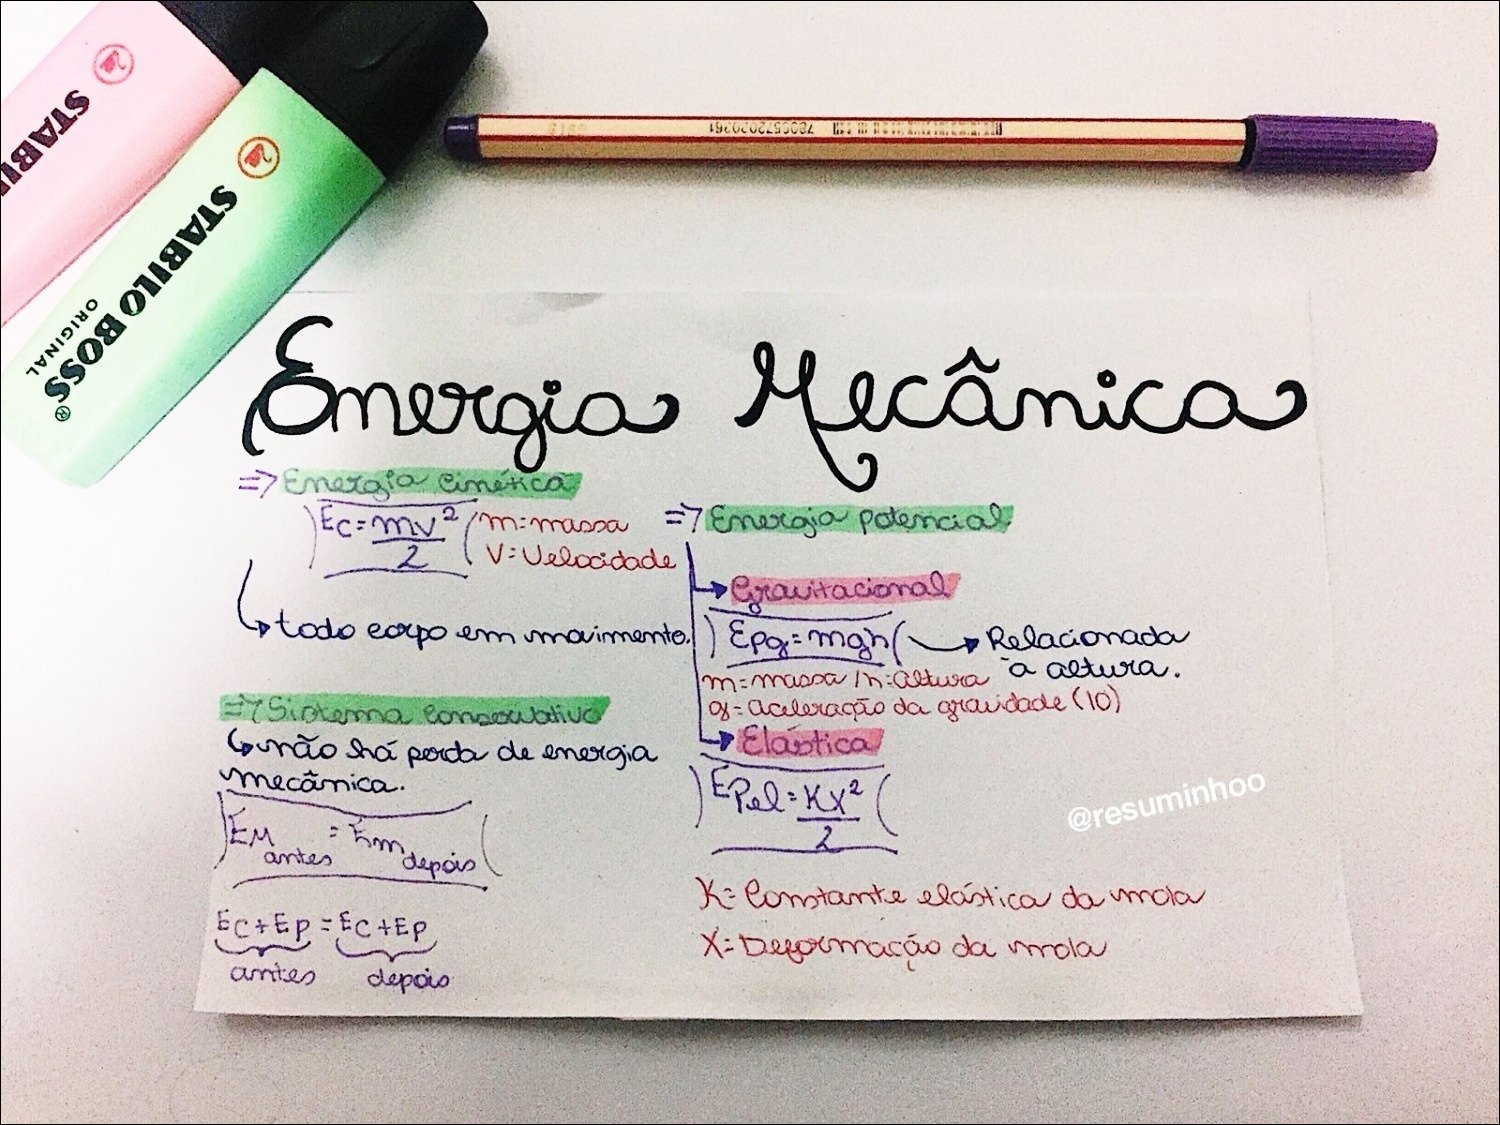 STABILO
STABILO BOSS®
ORIGINAL
7800572020361
Energia Mecânica
=> Energia cinética
Ec = mv²/2
m = massa
V = Velocidade
todo corpo em movimento.
=> Sistema conservativo
não há perda de energia
mecânica.
EM antes = Em depois
Ec + Ep = Ec + Ep
antes depois
=> Energia potencial
Gravitacional
Epg = mgh
Relacionada
à altura.
m = massa / h = altura
g = aceleração da gravidade (10)
Elástica
EPel = Kx²/2
K = Constante elástica da mola
X = Deformação da mola
@resuminhoo